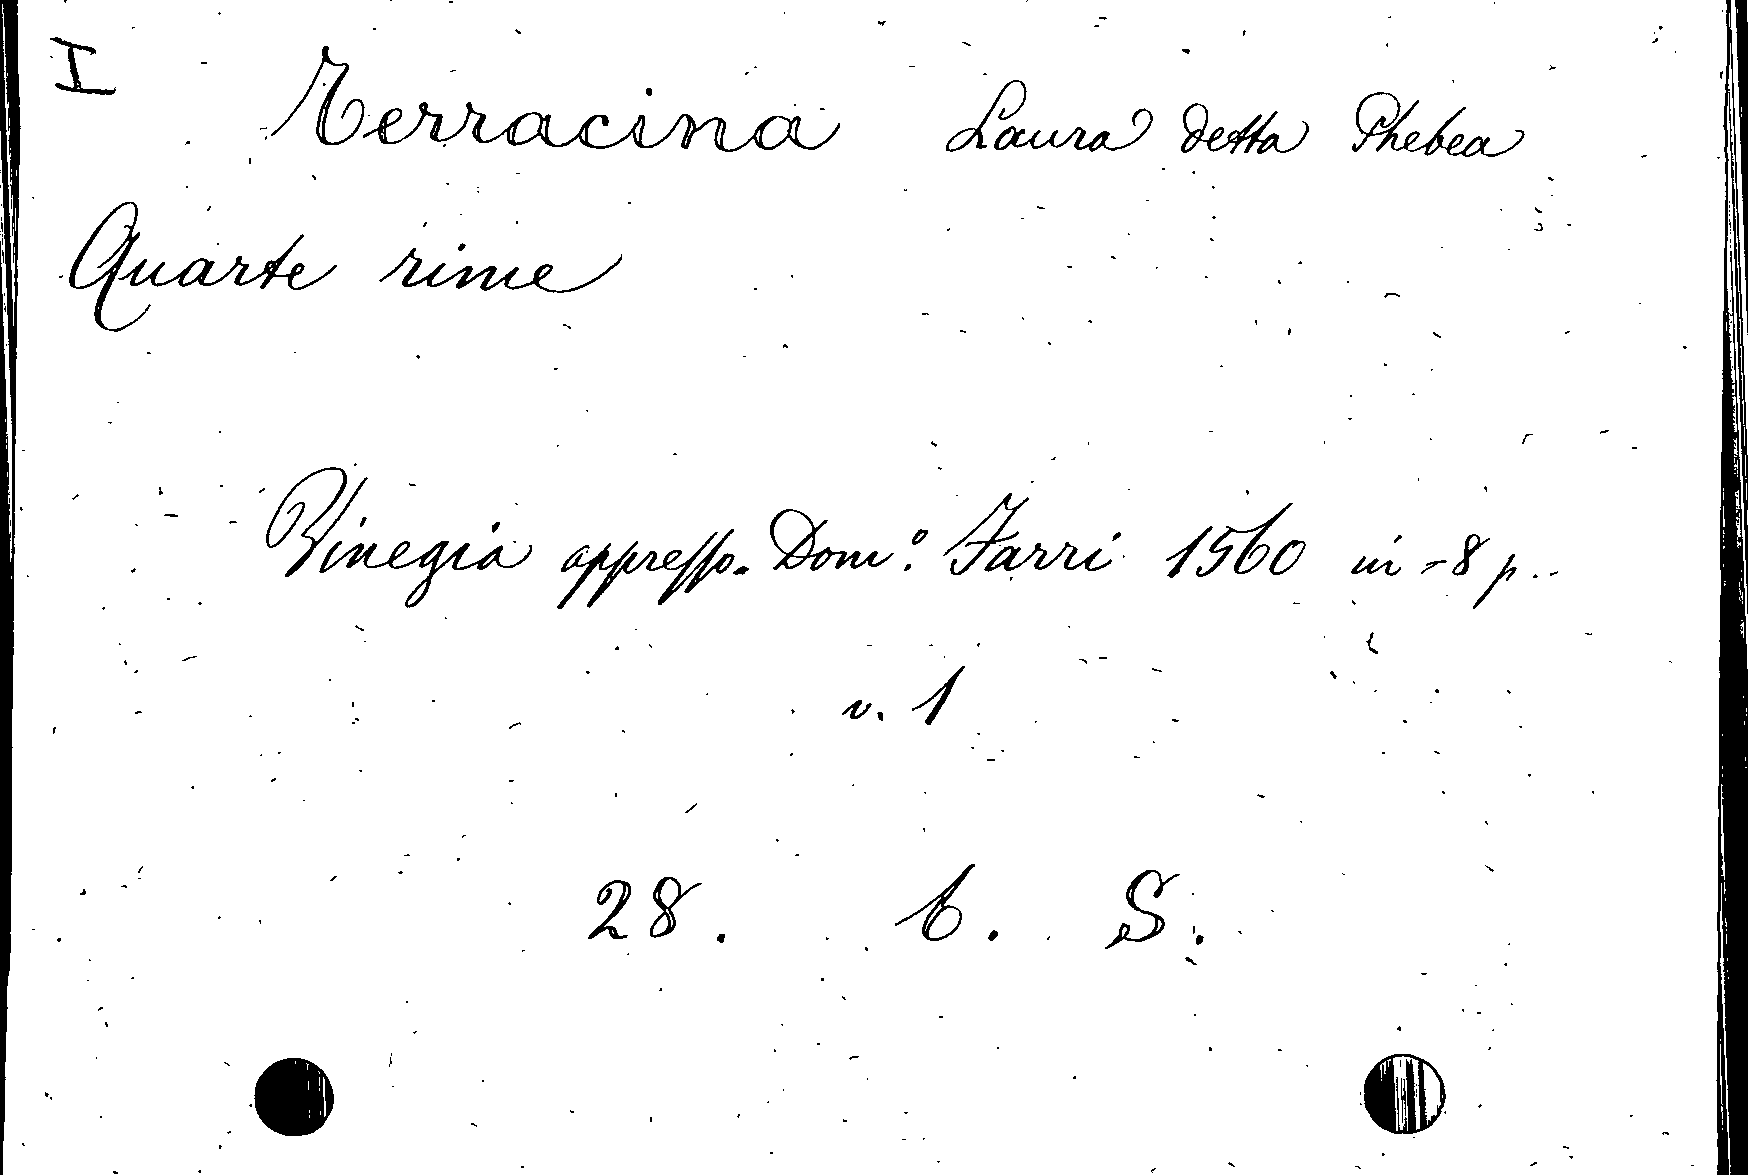 I
Terracina Laura detta Phebea
Quarte rime
Vinegia appresso. Dom.º Farri 1560 in-8 p.
v. 1
28. 6. S.